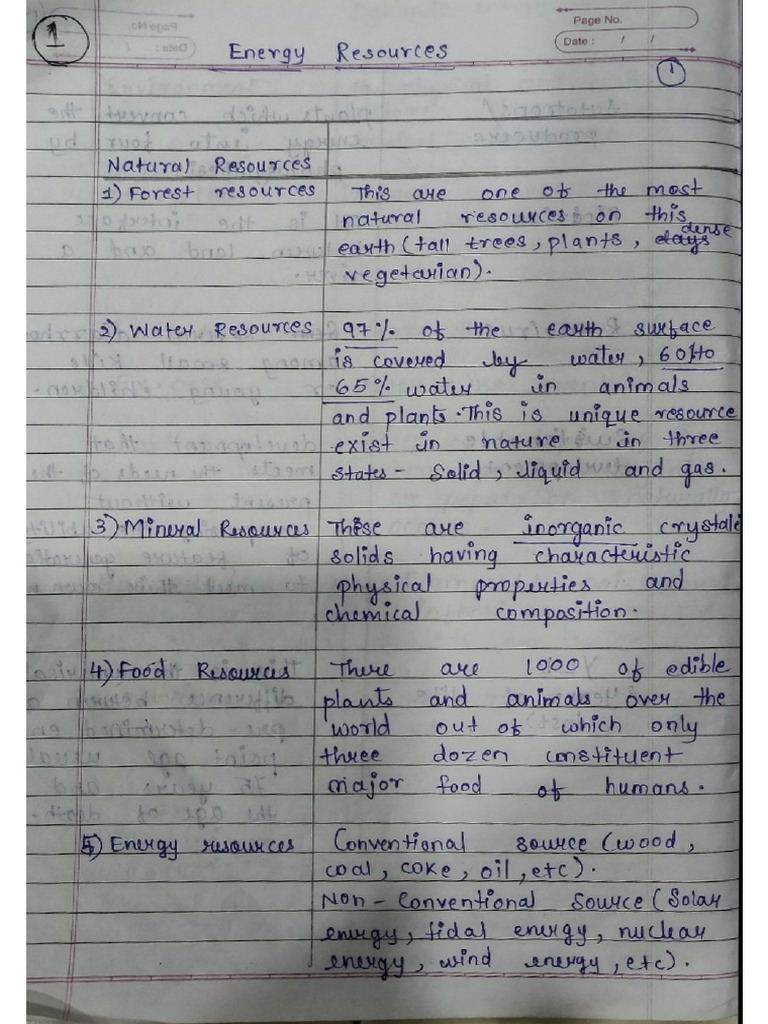 1
Page No.
Date : / /
Energy Resources
1
Natural Resources
1) Forest resources This are one of the most
natural resources on this
earth (tall trees, plants, dense
vegetarian).
2) Water Resources 97% of the earth surface
is covered by water, 60 to
65% water in animals
and plants. This is unique resource
exist in nature in three
states - Solid, liquid and gas.
3) Mineral Resources These are inorganic crystale
solids having characteristic
physical properties and
chemical composition.
4) Food Resources There are 1000 of edible
plants and animals over the
world out of which only
three dozen constituent
major food of humans.
5) Energy resources Conventional source (wood,
coal, coke, oil, etc).
Non - Conventional Source (Solar
energy, tidal energy, nuclear
energy, wind energy, etc).